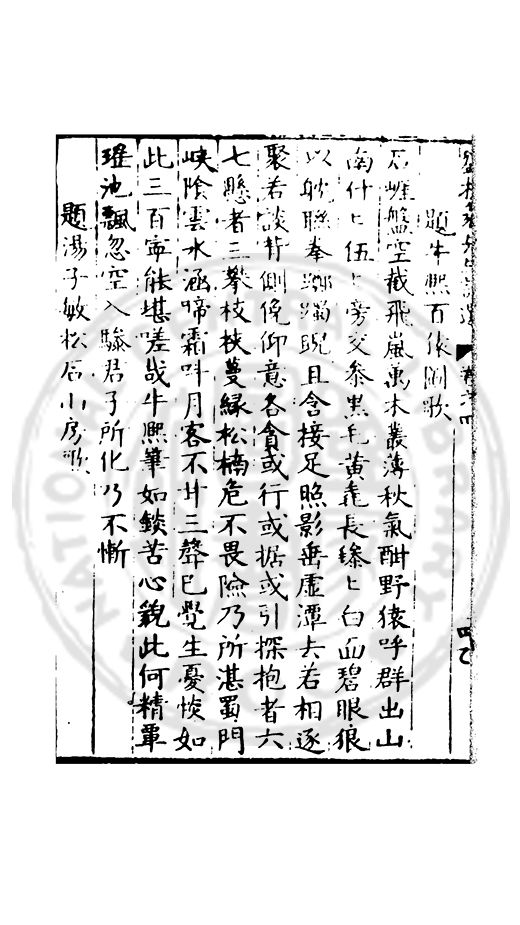 題牛熙百猿圖歌
石崕盤空截飛嵐萬木叢薄秋氣酣野猿呼群出山
南什〻伍〻旁交參黑毛黃毳長毿〻白面碧眼狼
以躭聯拳躑躅睨且含接足照影垂虛潭去若相逐
聚若談背側俛仰意各貪或行或据或引探抱者六
七懸者三攀枝挾蔓緣松楠危不畏險乃所湛蜀門
峽陰雲水涵啼霜呌月客不甘三聲已覺生憂惔如
此三百寧能堪嗟哉牛熙筆如錟苦心貌此何精覃
瑤池飄忽空入驂君子所化乃不慚
題湯子敏松石小房歌
NATIONAL LIBRARY